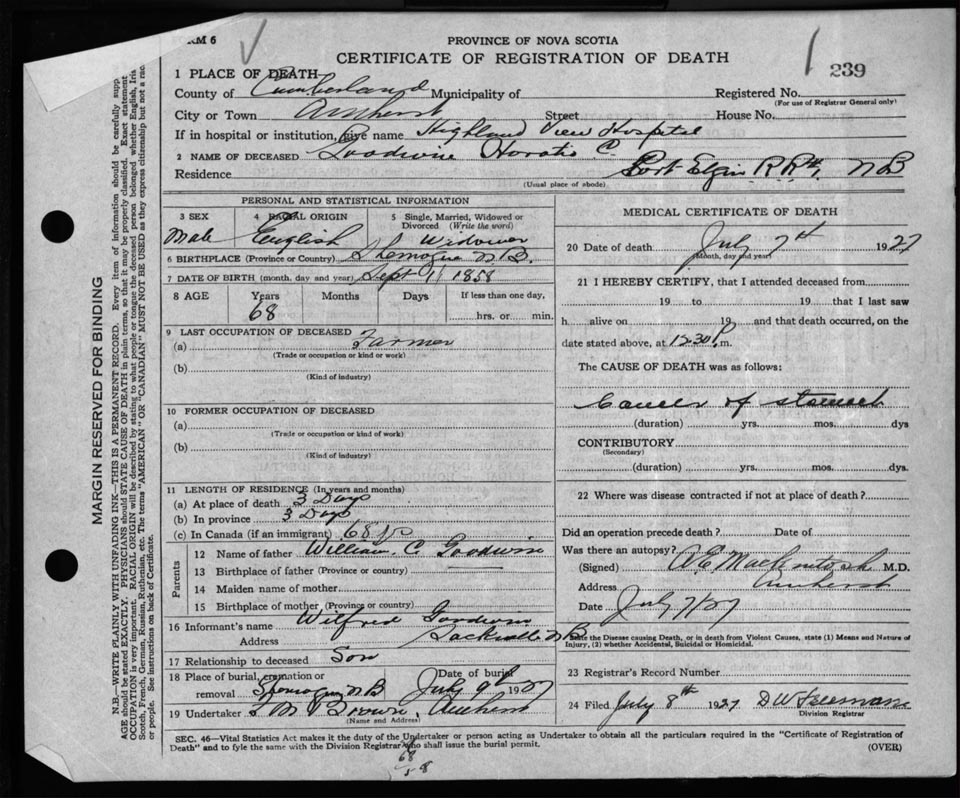 RM 6
PROVINCE OF NOVA SCOTIA
CERTIFICATE OF REGISTRATION OF DEATH
239
1 PLACE OF DEATH—
County of Cumberland Municipality of Registered No.
(For use of Registrar General only)
City or Town Amherst Street House No.
If in hospital or institution, give name Highland View Hospital
2 NAME OF DECEASED Goodwin Horatio C.
Residence Port Elgin R R 4, N B
(Usual place of abode)
PERSONAL AND STATISTICAL INFORMATION
3 SEX Male
4 RACIAL ORIGIN English
5 Single, Married, Widowed or Divorced (Write the word) Widower
6 BIRTHPLACE (Province or Country) Shemogue N B.
7 DATE OF BIRTH (month, day and year) Sept 1 1858
8 AGE Years Months Days If less than one day,
68 hrs. or min.
9 LAST OCCUPATION OF DECEASED
(a) Farmer
(Trade or occupation or kind or work)
(b)
(Kind of industry)
10 FORMER OCCUPATION OF DECEASED
(a)
(Trade or occupation or kind of work)
(b)
(Kind of industry)
11 LENGTH OF RESIDENCE (In years and months)
(a) At place of death 3 Days
(b) In province 3 Days
(c) In Canada (if an immigrant) 68
Parents
12 Name of father William C Goodwin
13 Birthplace of father (Province or country)
14 Maiden name of mother
15 Birthplace of mother (Province or country)
16 Informant's name Wilfred Goodwin
Address Sackville N B
17 Relationship to deceased Son
18 Place of burial, cremation or removal Shemogue N B
Date of burial July 9th 1927
19 Undertaker Brown, Amherst
(Name and Address)
MEDICAL CERTIFICATE OF DEATH
20 Date of death July 7th 1927
(Month, day and year)
21 I HEREBY CERTIFY, that I attended deceased from
19 to 19 that I last saw
h alive on 19 and that death occurred, on the
date stated above, at 12.30 P.m.
The CAUSE OF DEATH was as follows:
Cancer of stomach
(duration) yrs. mos. dys
CONTRIBUTORY
(Secondary)
(duration) yrs. mos. dys.
22 Where was disease contracted if not at place of death?
Did an operation precede death? Date of
Was there an autopsy?
(Signed) A E Mackintosh M.D.
Address Amherst
Date July 7/27
State the Disease causing Death, or in death from Violent Causes, state (1) Means and Nature of
Injury, (2) whether Accidental, Suicidal or Homicidal.
23 Registrar's Record Number
24 Filed July 8th 1927 D W Freeman
Division Registrar
SEC. 46—Vital Statistics Act makes it the duty of the Undertaker or person acting as Undertaker to obtain all the particulars required in the "Certificate of Registration of
Death" and to fyle the same with the Division Registrar who shall issue the burial permit.
(OVER)
68
58
MARGIN RESERVED FOR BINDING
N.B.—WRITE PLAINLY WITH UNFADING INK—THIS IS A PERMANENT RECORD. Every item of information should be carefully supp
AGE should be stated EXACTLY. PHYSICIANS should STATE CAUSE OF DEATH in plain terms, so that it may be properly classified. Exact statement
OCCUPATION is very important. RACIAL ORIGIN will be described by stating to what people or tongue the deceased person belonged whether English, Iris
Scotch, French, German, Russian, Ruthenian, etc. The terms "AMERICAN" or "CANADIAN" MUST NOT BE USED as they express citizenship but not a rac
or people. See instructions on back of Certificate.